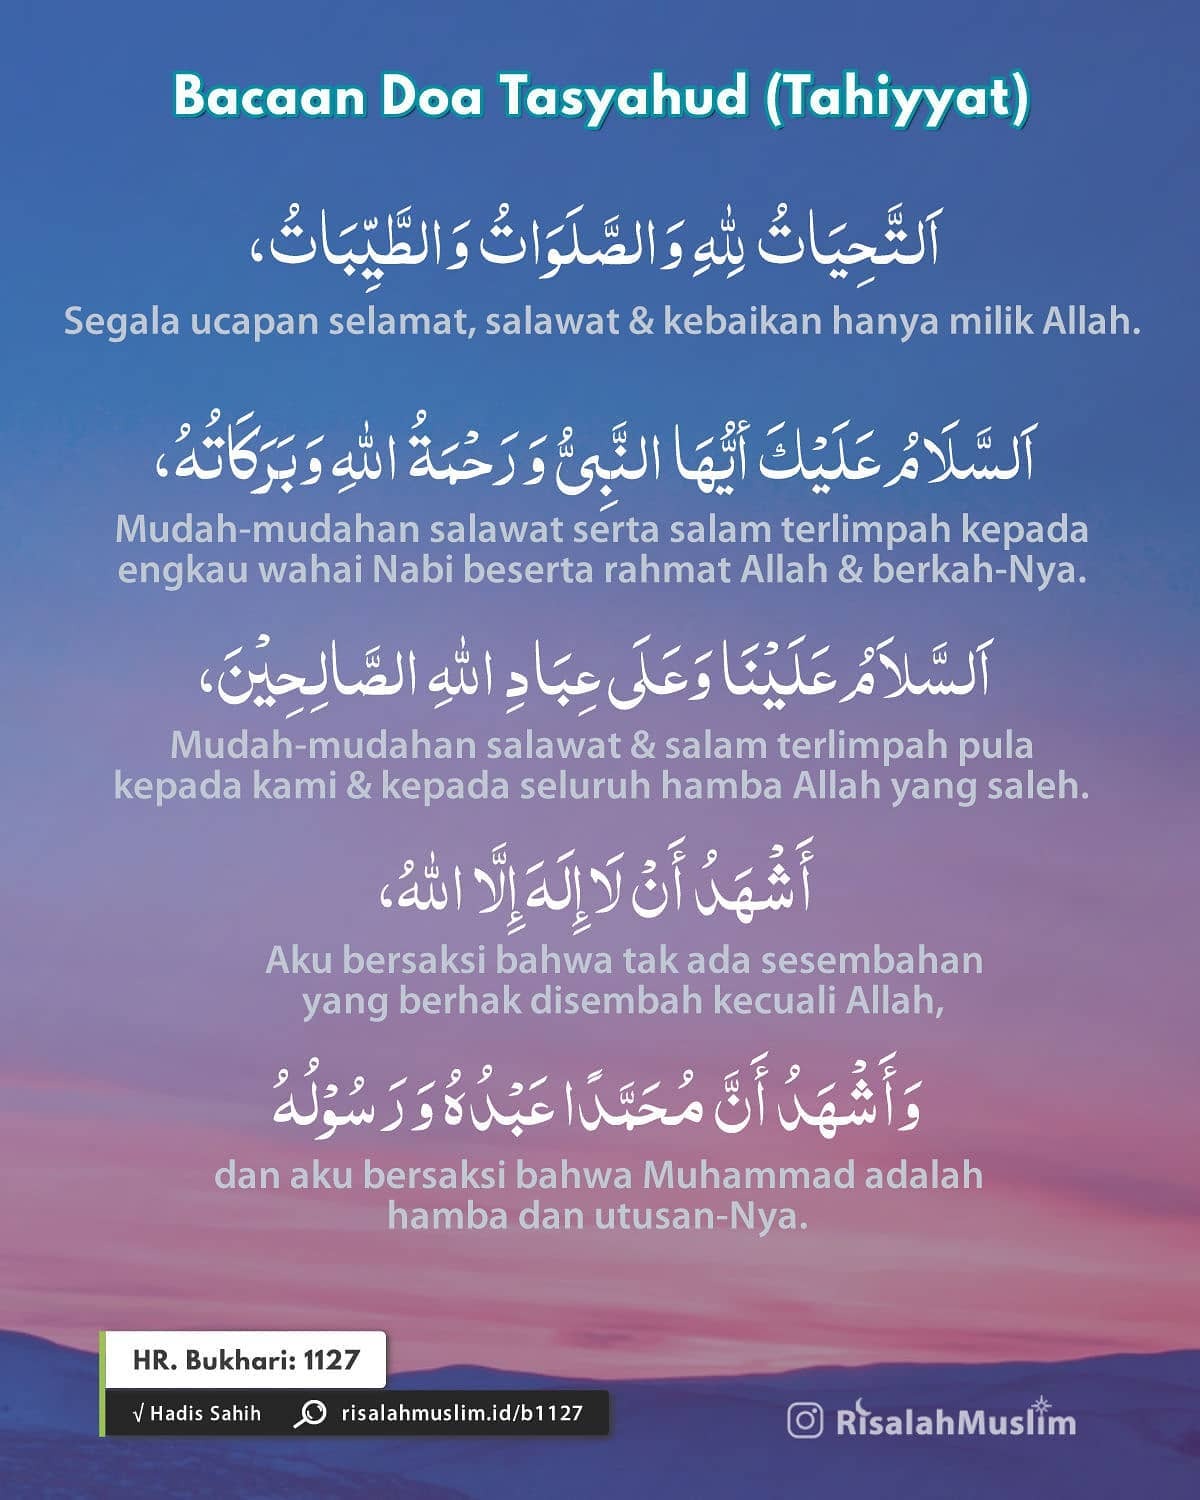 Bacaan Doa Tasyahud (Tahiyyat)
اَلتَّحِيَاتُ لِلّٰهِ وَالصَّلَوَاتُ وَالطَّيِّبَاتُ،
Segala ucapan selamat, salawat & kebaikan hanya milik Allah.
اَلسَّلَامُ عَلَيْكَ أَيُّهَا النَّبِيُّ وَرَحْمَةُ اللّٰهِ وَبَرَكَاتُهُ،
Mudah-mudahan salawat serta salam terlimpah kepada
engkau wahai Nabi beserta rahmat Allah & berkah-Nya.
اَلسَّلاَمُ عَلَيْنَا وَعَلَى عِبَادِ اللّٰهِ الصَّالِحِيْنَ،
Mudah-mudahan salawat & salam terlimpah pula
kepada kami & kepada seluruh hamba Allah yang saleh.
أَشْهَدُ أَنْ لَا إِلَهَ إِلَّا اللّٰهُ،
Aku bersaksi bahwa tak ada sesembahan
yang berhak disembah kecuali Allah,
وَأَشْهَدُ أَنَّ مُحَمَّدًا عَبْدُهُ وَرَسُوْلُهُ
dan aku bersaksi bahwa Muhammad adalah
hamba dan utusan-Nya.
HR. Bukhari: 1127
√ Hadis Sahih risalahmuslim.id/b1127
RisalahMuslim